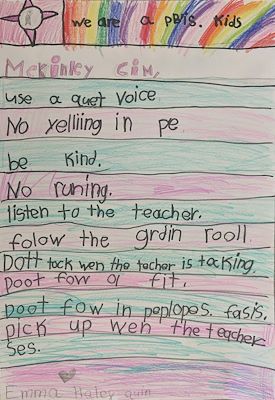 we are a pbis. kids
Mckinley Gim,
use a quet voice
No yelliing in pe
be kind.
No runing.
listen to the teacher.
folow the grdin rooll
Dott tock wen the techer is tocking.
Doot fow a fit.
Doot fow in peplopes. fasis.
pick up weh the teacher
ses.
Emma Haley quin